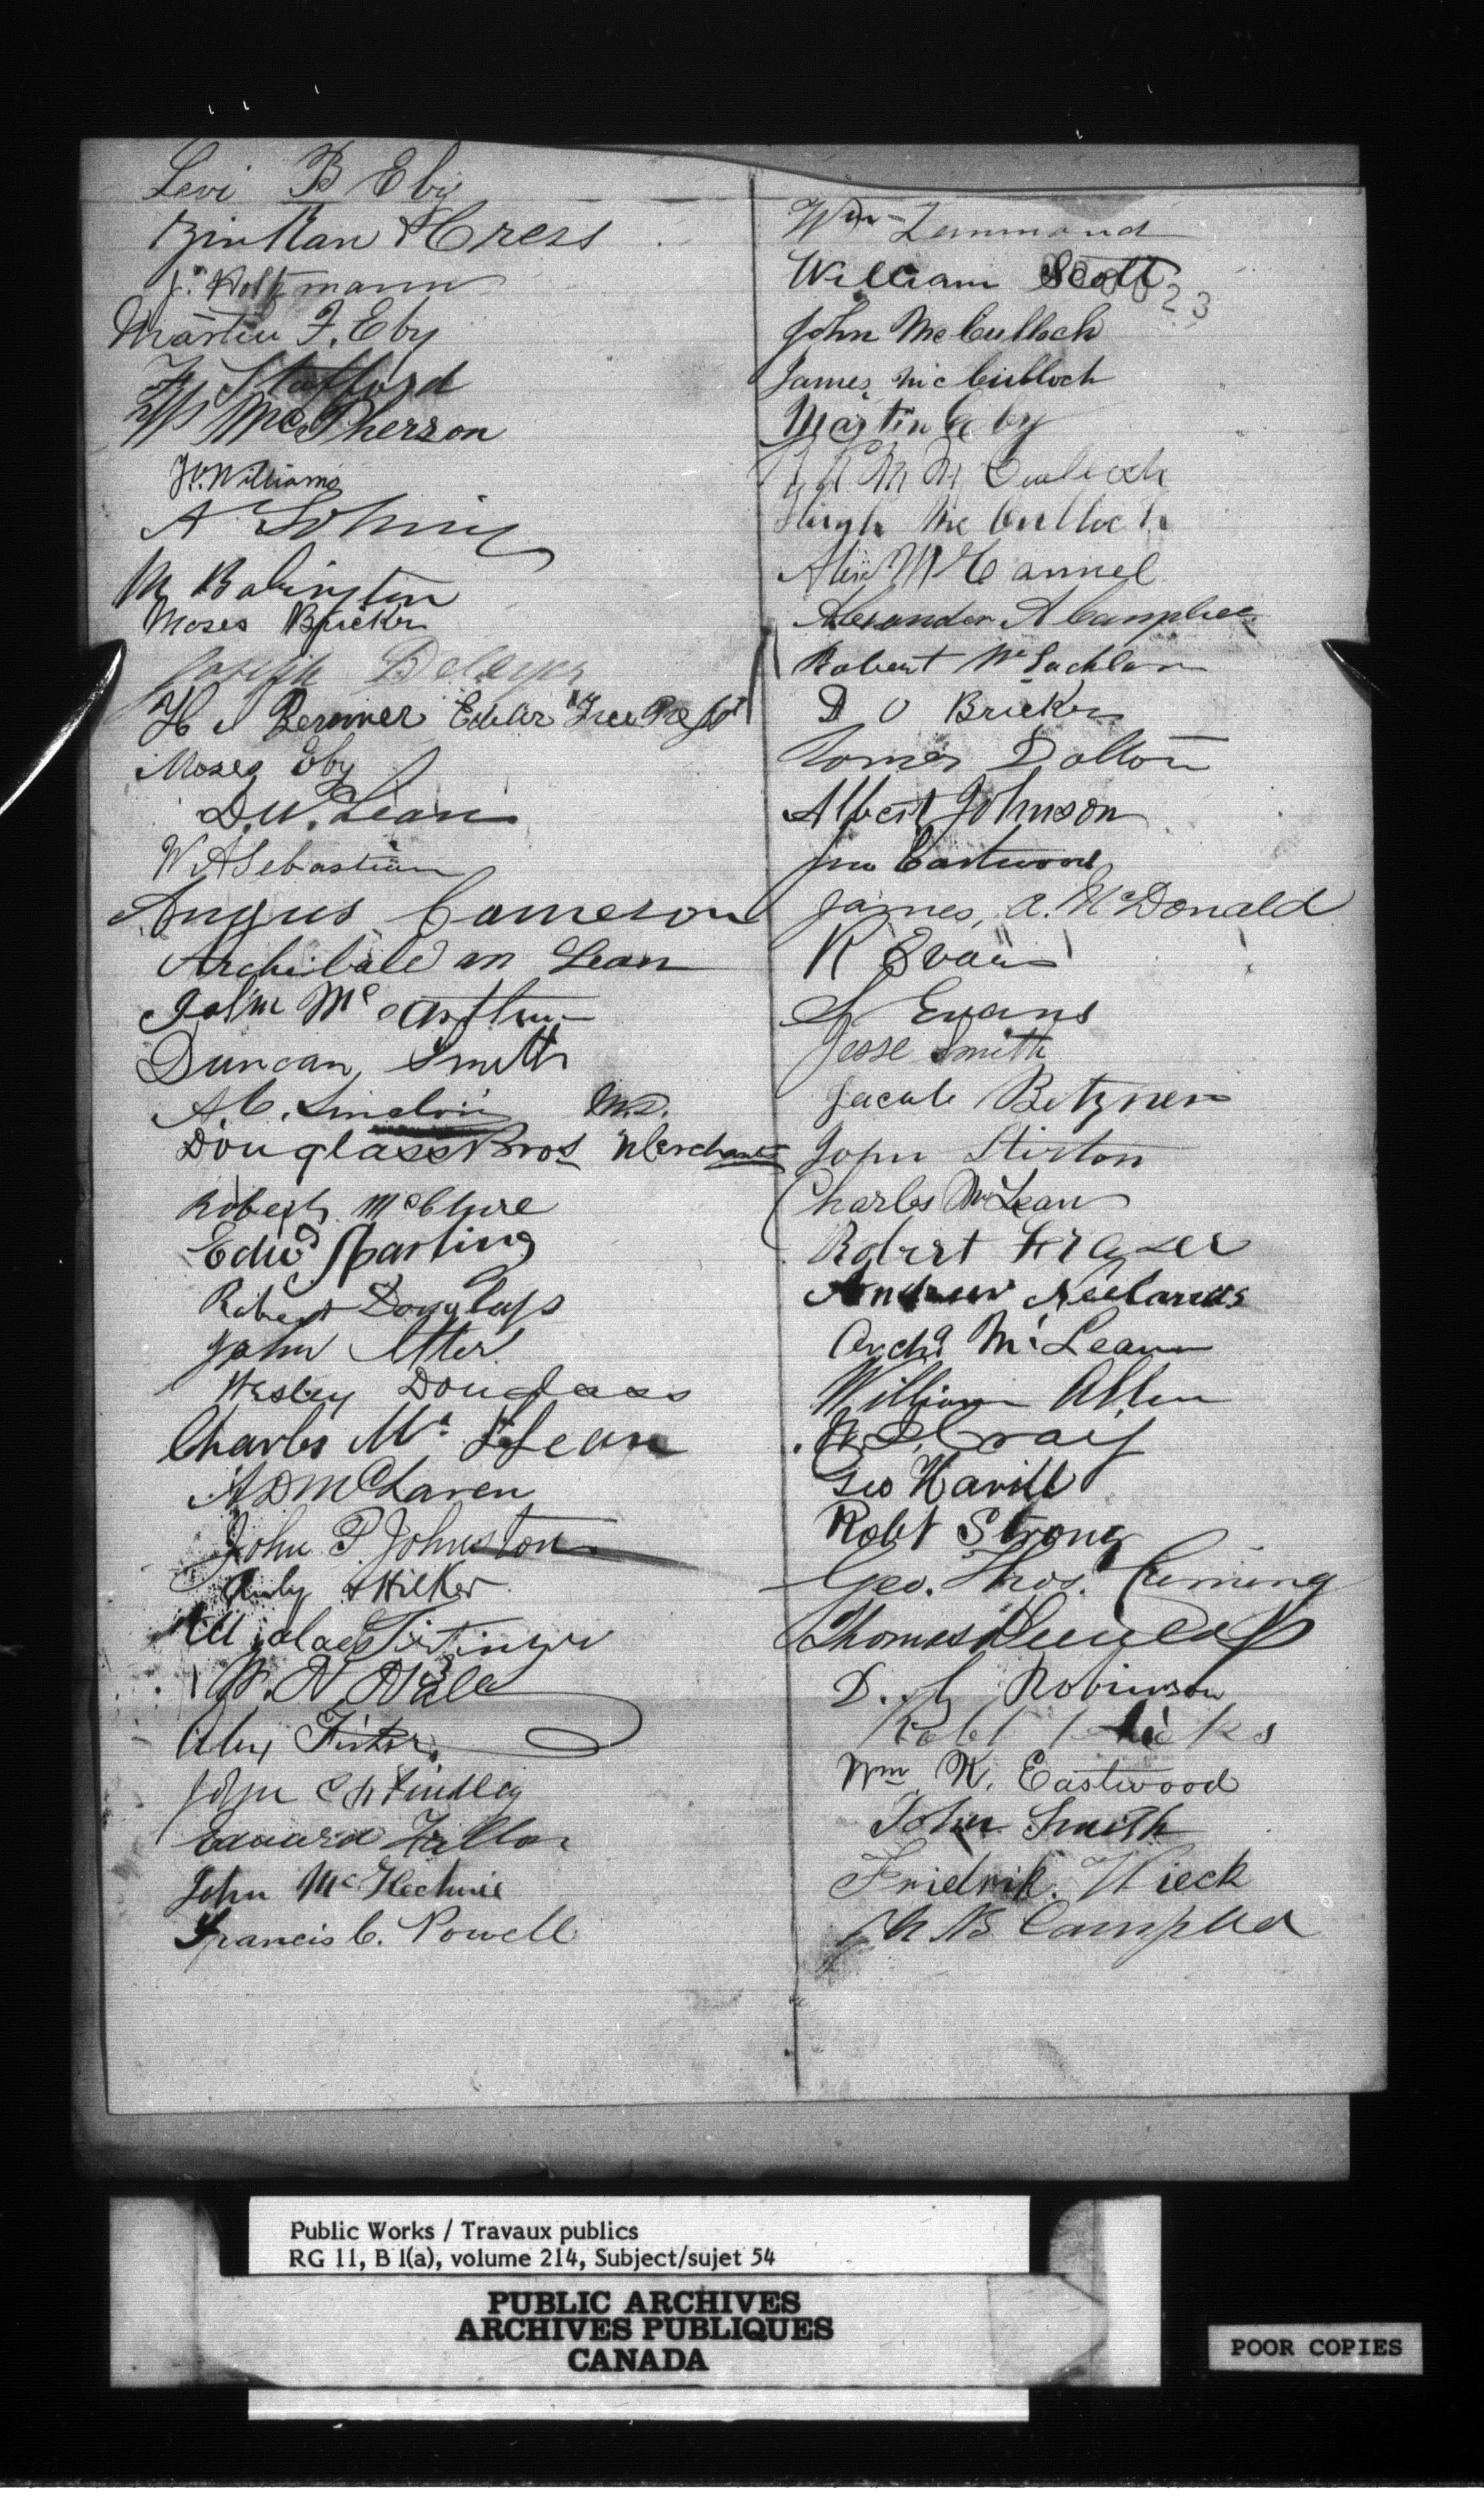 Levi B Eby
Zinkan & Cress
J. Holtzmann
Martin F. Eby
F Stafford
McPherson
W. Williams
A
M Babington
Moses Bricker
Joseph
H Benner Editor "Free Press"
Moses Eby
D. W. Lean
W A Sebastian
Angus Cameron
Archibald m Lean
John Mc arthur
Duncan Smith
A. C. Sinclair M.D.
Douglass Bros Merchants
Robert McClure
Edwd Sparling
Robert Douglass
John Atter
Wesley Douglass
Charles Mc Lean
A D McLaren
John P. Johnston
& Hilker
W. N. Hall
Alex Fisher
John Findlay
Edward Fallon
John McKechnie
Francis C. Powell
Wm Lammond
William Scott
23
John McCulloch
James McCulloch
Martin Eby
Hugh McCulloch
Alex McCannel
Alexander A Campbell
Robert McLachlan
D O Bricker
James Dalton
Albert Johnson
Jno Eastwood
James, A. McDonald
R Evans
S Evans
Jesse Smith
Jacob Betzner
John Stirton
Charles McLean
Robert Frazer
Andrew Neelands
Archd McLean
William Allen
Craig
Geo Havill
Robt Strong
Geo. Thos. Cuming
Thomas Douglass
D. G Robinson
Robt Hicks
Wm K. Eastwood
John Smith
Friedrik. Wieck
Campbell
Public Works / Travaux publics
RG 11, B 1(a), volume 214, Subject/sujet 54
PUBLIC ARCHIVES
ARCHIVES PUBLIQUES
CANADA
POOR COPIES